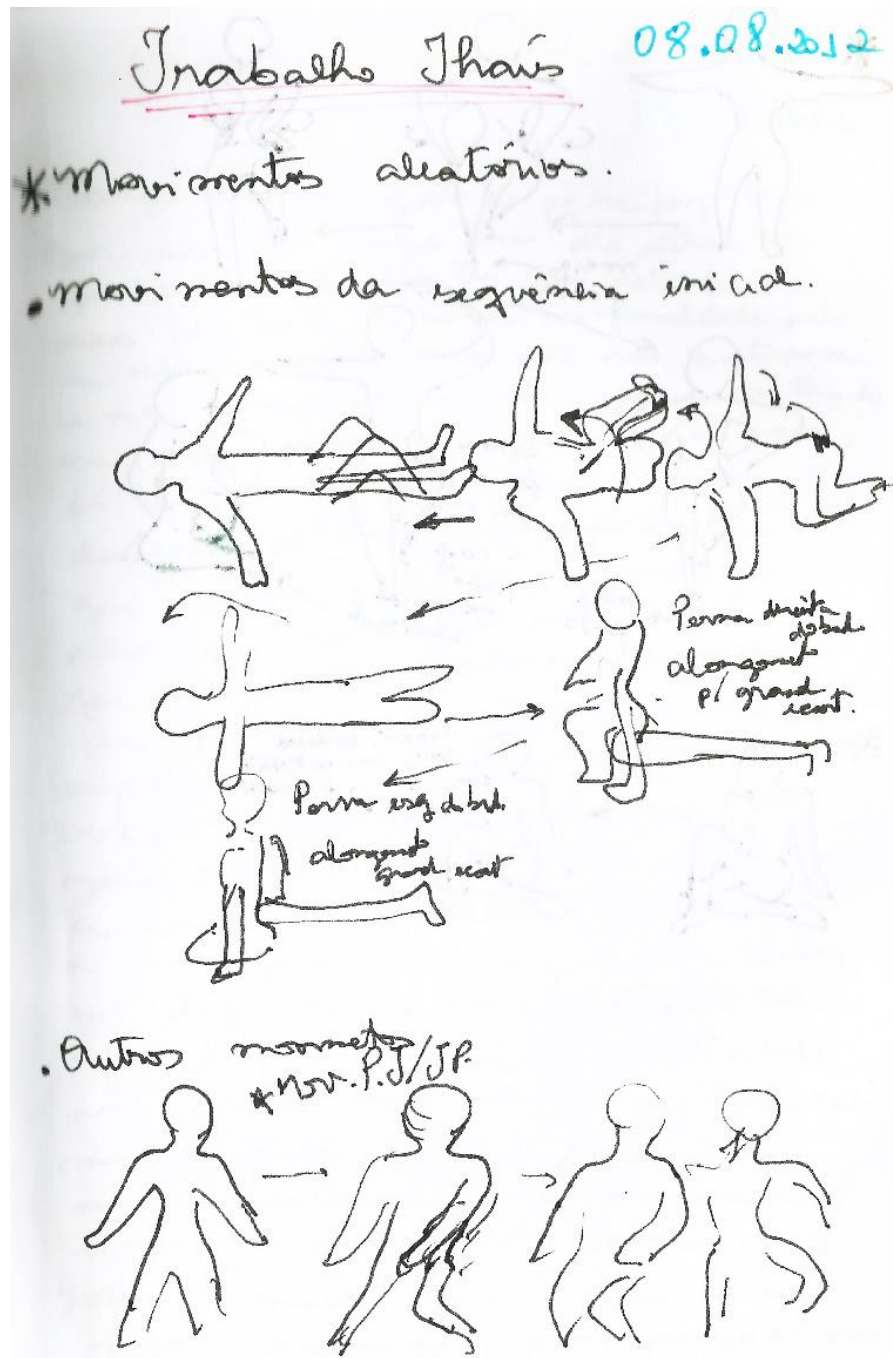 Trabalho Thaís
08.08.2012
* Movimentos aleatórios.
. Movimentos da sequência inicial.
Perna direita
dobad.
alongament
p/ grand
ecart.
Perna esq dobad.
alongament
grand ecart
. Outros movimetos
* Mov. P.J/JP.